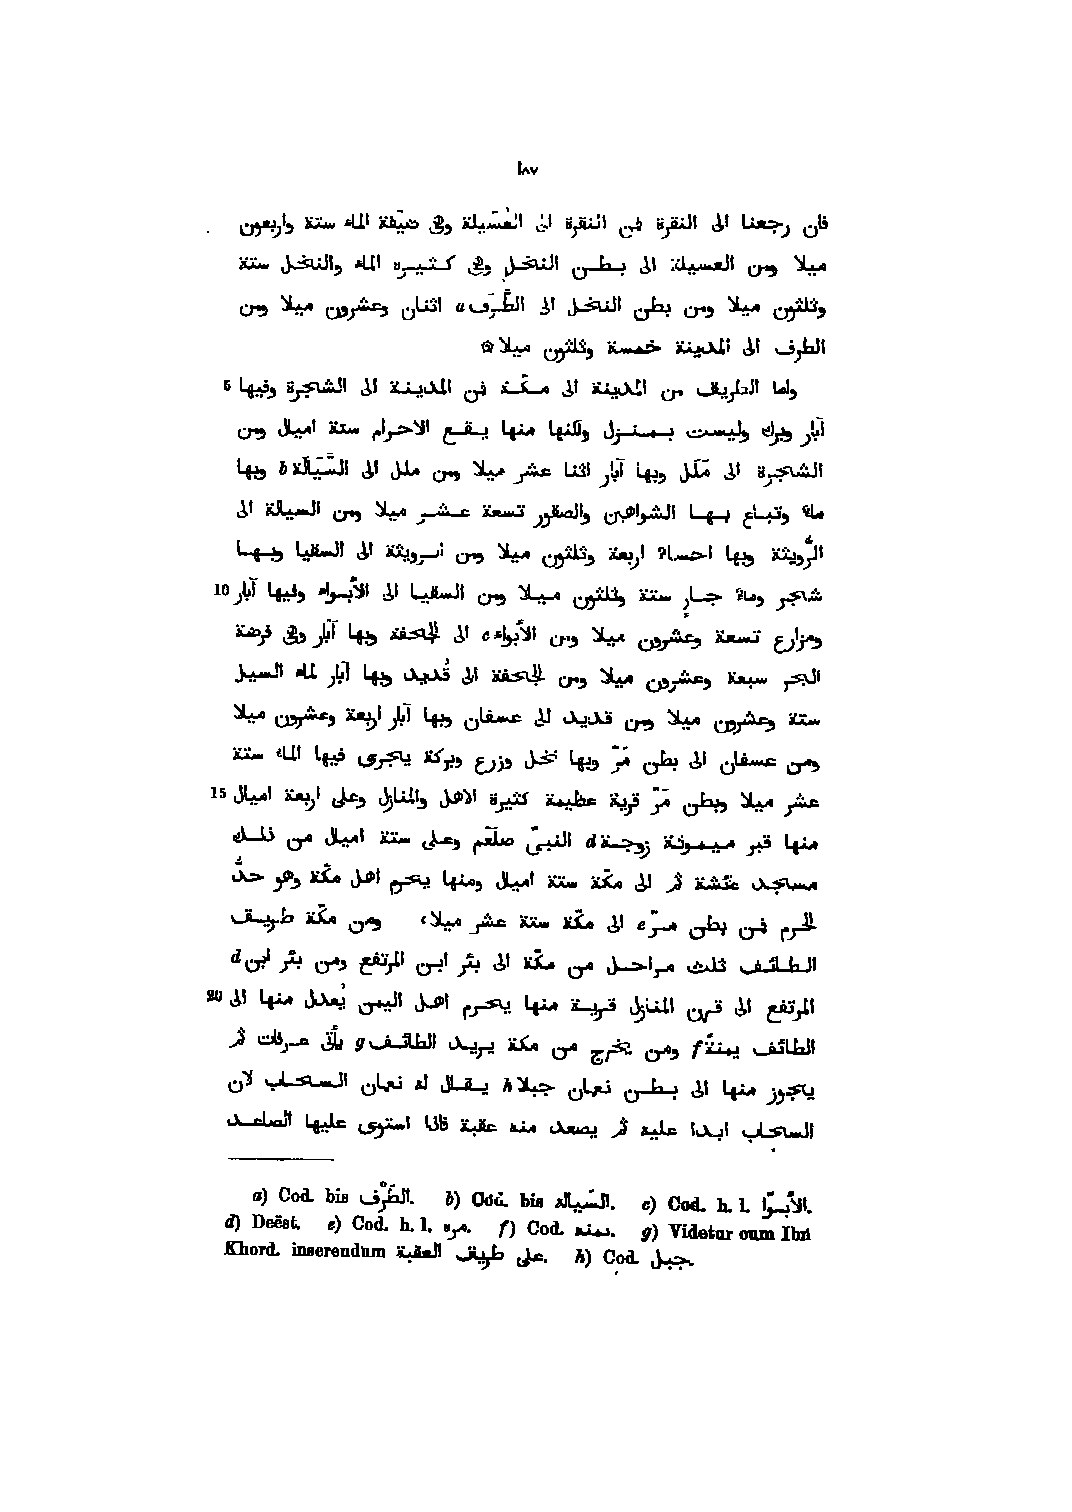 ١٨٧
فان رجعنا الى النقرة فمن النقرة الى العُسَيلة وفى ضيّقة الماء ستة واربعون
ميلا ومن العسيلة الى بطن النخل وفى كثيره الماء والنخل ستة
وثلثون ميلا ومن بطن النخل الى الطَّرَف a اثنان وعشرون ميلا ومن
الطرف الى المدينة خمسة وثلثون ميلا ۞
واما الطريف من المدينة الى مكّة فمن المدينة الى الشجرة وفيها 5
آبار وبرك وليست بمنزل ولكنها منها يقع الاحرام ستة اميال ومن
الشجرة الى مَلَل وبها آبار اثنا عشر ميلا ومن ملل الى السَّيَالة b وبها
ماء وتباع بها الشواهين والصقور تسعة عشر ميلا ومن السيالة الى
الرُّويثة وبها احساء اربعة وثلثون ميلا ومن الرويثة الى السقيا وبها
شجر وماء جارٍ ستة وثلثون ميلا ومن السقيا الى الأَبْواء وفيها آبار 10
ومزارع تسعة وعشرون ميلا ومن الأَبواء c الى الجحفة وبها آبار وفى فرضة
البحر سبعة وعشرون ميلا ومن الجحفة الى قُديد وبها آبار لماء السيل
ستة وعشرون ميلا ومن قديد الى عسفان وبها آبار اربعة وعشرون ميلا
ومن عسفان الى بطن مَرّ وبها نخل وزرع وبركة يجرى فيها الماء ستة
عشر ميلا وبطن مَرّ قرية عظيمة كثيرة الاهل والمنازل وعلى اربعة اميال 15
منها قبر ميمونة زوجة d النبىّ صلعم وعلى ستة اميال من ذلك
مسجد عئشة ثم الى مكّة ستة اميال ومنها يحرم اهل مكّة وهو حدُّ
الحرم فمن بطن مرّ e الى مكّة ستة عشر ميلا، ومن مكّة طريق
الطائف ثلث مراحل من مكّة الى بئر ابن المرتفع ومن بئر ابن d
المرتفع الى قرن المنازل قرية منها يحرم اهل اليمن يُعدل منها الى 20
الطائف يمنةً f ومن يخرج من مكة يريد الطائف g يأتى عرفات ثم
يجوز منها الى بطن نعمان جبلا h يقال له نعمان السحاب لان
السحاب ابدا عليه ثم يصعد منه عقبة فاذا استوى عليها الصاعد
a) Cod. bis الطَّرْف. b) Cod. bis السّيالة. c) Cod. h. l. الأَبوّا.
d) Deëst. e) Cod. h. l. مره. f) Cod. يمنه. g) Videtur cum Ibn
Khord. inserendum على طريق العقبة. h) Cod. جبل.